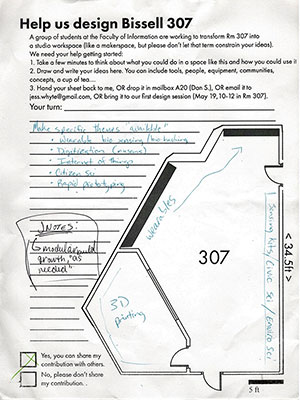 Help us design Bissell 307
A group of students at the Faculty of Information are working to transform Rm 307 into
a studio workspace (like a makerspace, but please don't let that term constrain your ideas).
We need your help getting started:
1. Take a few minutes to think about what you could do in a space like this and how you could use it
2. Draw and write your ideas here. You can include tools, people, equipment, communities,
concepts, a cup of tea...
3. Hand your sheet back to me, OR drop it in mailbox A20 (Dan S.), OR email it to
jess.whyte@gmail.com, OR bring it to our first design session (May 19, 10-12 in Rm 307).
Your turn:
Make specific themes "available"
• Wearable bio sensing/
• Digitization (museums)
• Internet of things
• Citizen Sci
• Rapid prototyping
NOTES:
modular build
growth, "as
needed"
wearables
307
< 34.5ft >
Sensing Kits, Civic Sci / Enviro Sci
3D
printing
Yes, you can share my
contribution with others.
No, please don't share
my contribution.
5 ft